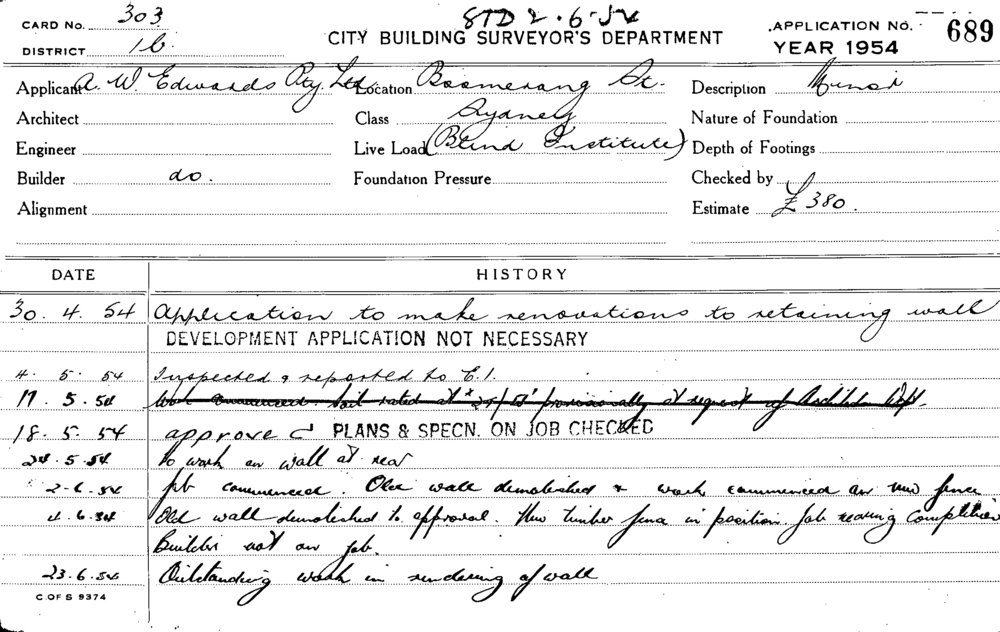 CARD No. 303
STD 2.6.54
APPLICATION No. 689
DISTRICT 16.
CITY BUILDING SURVEYOR'S DEPARTMENT
YEAR 1954
Applicant A. W. Edwards Pty. Ltd. Location Boomerang St. Description Minor
Architect Class Sydney Nature of Foundation
Engineer Live Load (Blind Institute) Depth of Footings
Builder do. Foundation Pressure Checked by
Alignment Estimate £380.
DATE HISTORY
30.4.54 Application to make renovations to retaining wall
DEVELOPMENT APPLICATION NOT NECESSARY
4.5.54 Inspected & reported to C.I.
17.5.54 Work commenced. Soil rated at provisionally at request of Dept.
18.5.54 approved PLANS & SPECN. ON JOB CHECKED
24.5.54 No work on wall at rear
2-6.54 Job commenced. Old wall demolished & work commenced on new fence
4.6.54 Old wall demolished to approval. New timber fence in position. Job nearing completion
Builder not on job.
23.6.54 Outstanding work in rendering of wall
C OF S 9374